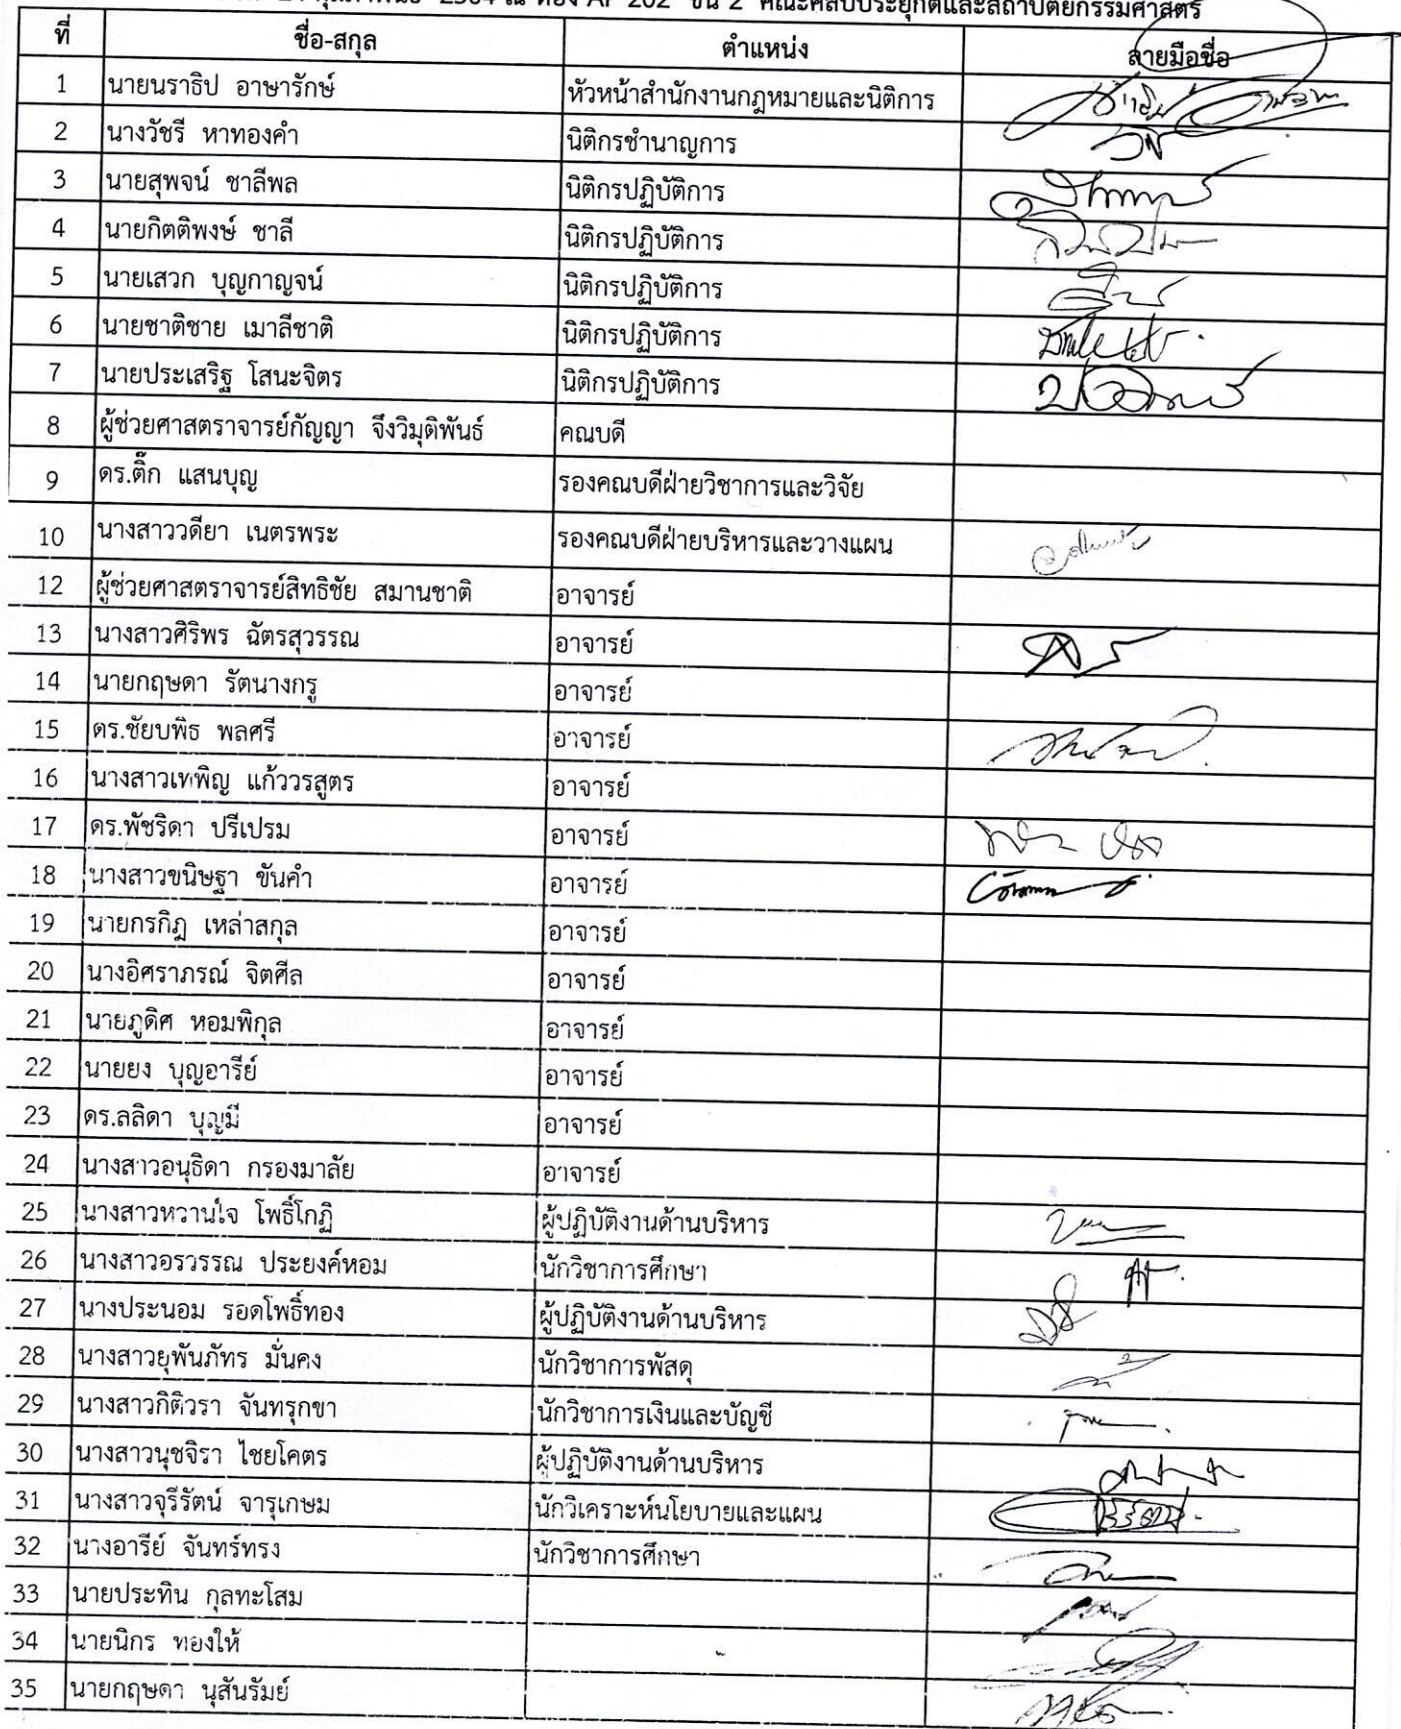 24 กุมภาพันธ์ 2564 ณ ห้อง AP 202 ชั้น 2 คณะศิลปประยุกต์และสถาปัตยกรรมศาสตร์
ที่ ชื่อ-สกุล ตำแหน่ง ลายมือชื่อ
1 นายนราธิป อาษารักษ์ หัวหน้าสำนักงานกฎหมายและนิติการ
2 นางวัชรี หาทองคำ นิติกรชำนาญการ
3 นายสุพจน์ ชาลีพล นิติกรปฏิบัติการ
4 นายกิตติพงษ์ ชาลี นิติกรปฏิบัติการ
5 นายเสวก บุญกาญจน์ นิติกรปฏิบัติการ
6 นายชาติชาย เมาลีชาติ นิติกรปฏิบัติการ
7 นายประเสริฐ โสนะจิตร นิติกรปฏิบัติการ
8 ผู้ช่วยศาสตราจารย์กัญญา จึงวิมุติพันธ์ คณบดี
9 ดร.ติ๊ก แสนบุญ รองคณบดีฝ่ายวิชาการและวิจัย
10 นางสาววดียา เนตรพระ รองคณบดีฝ่ายบริหารและวางแผน
12 ผู้ช่วยศาสตราจารย์สิทธิชัย สมานชาติ อาจารย์
13 นางสาวศิริพร ฉัตรสุวรรณ อาจารย์
14 นายกฤษดา รัตนางกรู อาจารย์
15 ดร.ชัยบพิธ พลศรี อาจารย์
16 นางสาวเทพิญ แก้ววรสูตร อาจารย์
17 ดร.พัชริดา ปรีเปรม อาจารย์
18 นางสาวขนิษฐา ขันคำ อาจารย์
19 นายกรกิฎ เหล่าสกุล อาจารย์
20 นางอิศราภรณ์ จิตศีล อาจารย์
21 นายภูดิศ หอมพิกุล อาจารย์
22 นายยง บุญอารีย์ อาจารย์
23 ดร.ลลิดา บุญมี อาจารย์
24 นางสาวอนุธิดา กรองมาลัย อาจารย์
25 นางสาวหวานใจ โพธิ์โกฏิ ผู้ปฏิบัติงานด้านบริหาร
26 นางสาวอรวรรณ ประยงค์หอม นักวิชาการศึกษา
27 นางประนอม รอดโพธิ์ทอง ผู้ปฏิบัติงานด้านบริหาร
28 นางสาวยุพันภัทร มั่นคง นักวิชาการพัสดุ
29 นางสาวกิติวรา จันทรุกขา นักวิชาการเงินและบัญชี
30 นางสาวนุชจิรา ไชยโคตร ผู้ปฏิบัติงานด้านบริหาร
31 นางสาวจุรีรัตน์ จารุเกษม นักวิเคราะห์นโยบายและแผน
32 นางอารีย์ จันทร์ทรง นักวิชาการศึกษา
33 นายประทิน กุลทะโสม
34 นายนิกร ทองให้
35 นายกฤษดา นุสันรัมย์